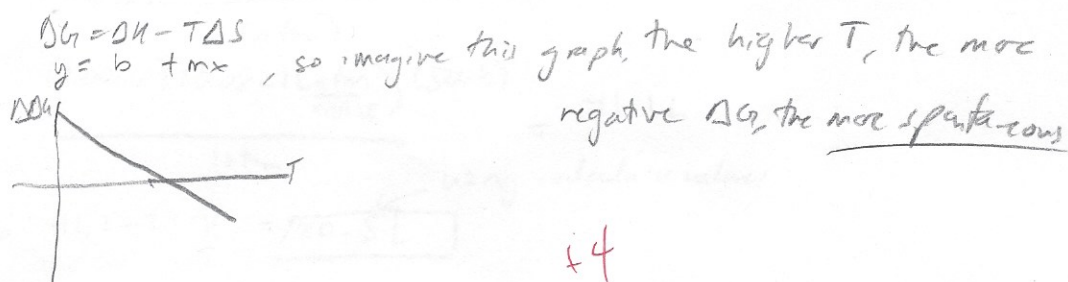 ΔG = ΔH - TΔS
y = b + mx , so imagine this graph, the higher T, the more
negative ΔG, the more spontaneous
T
+4